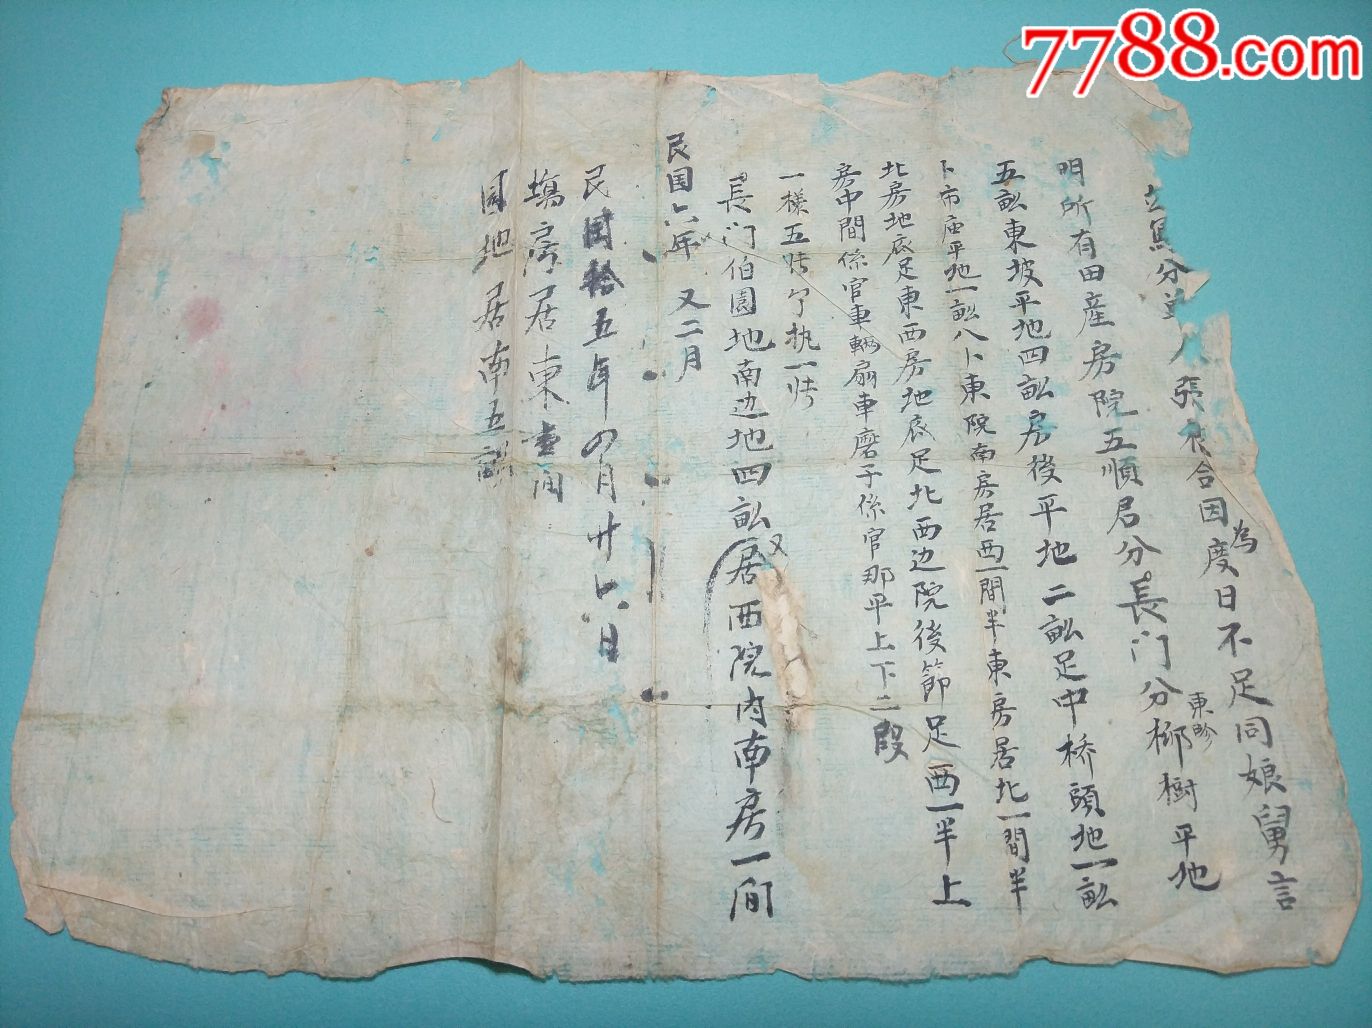 7788.com
分 張 合因為度日不足同娘舅言
明所有田産房院五順君分長门分柳樹東畛平地
五畝東坡平地四畝房後平地二畝足中桥頭地一畝
卜市庙平地一畝八卜東院南房居西一間半東房居北一間半
北房地底足東西房地底足北西边院後節足西一半上
房中間係官車輛扇車磨子係官那平上下二段
一樣五 执一
長门伯園地南边地四畝又居西院内南房一间
民国六年 又二月
民國拾五年四月廿六日
塲房居東壹间
園地居南五畝